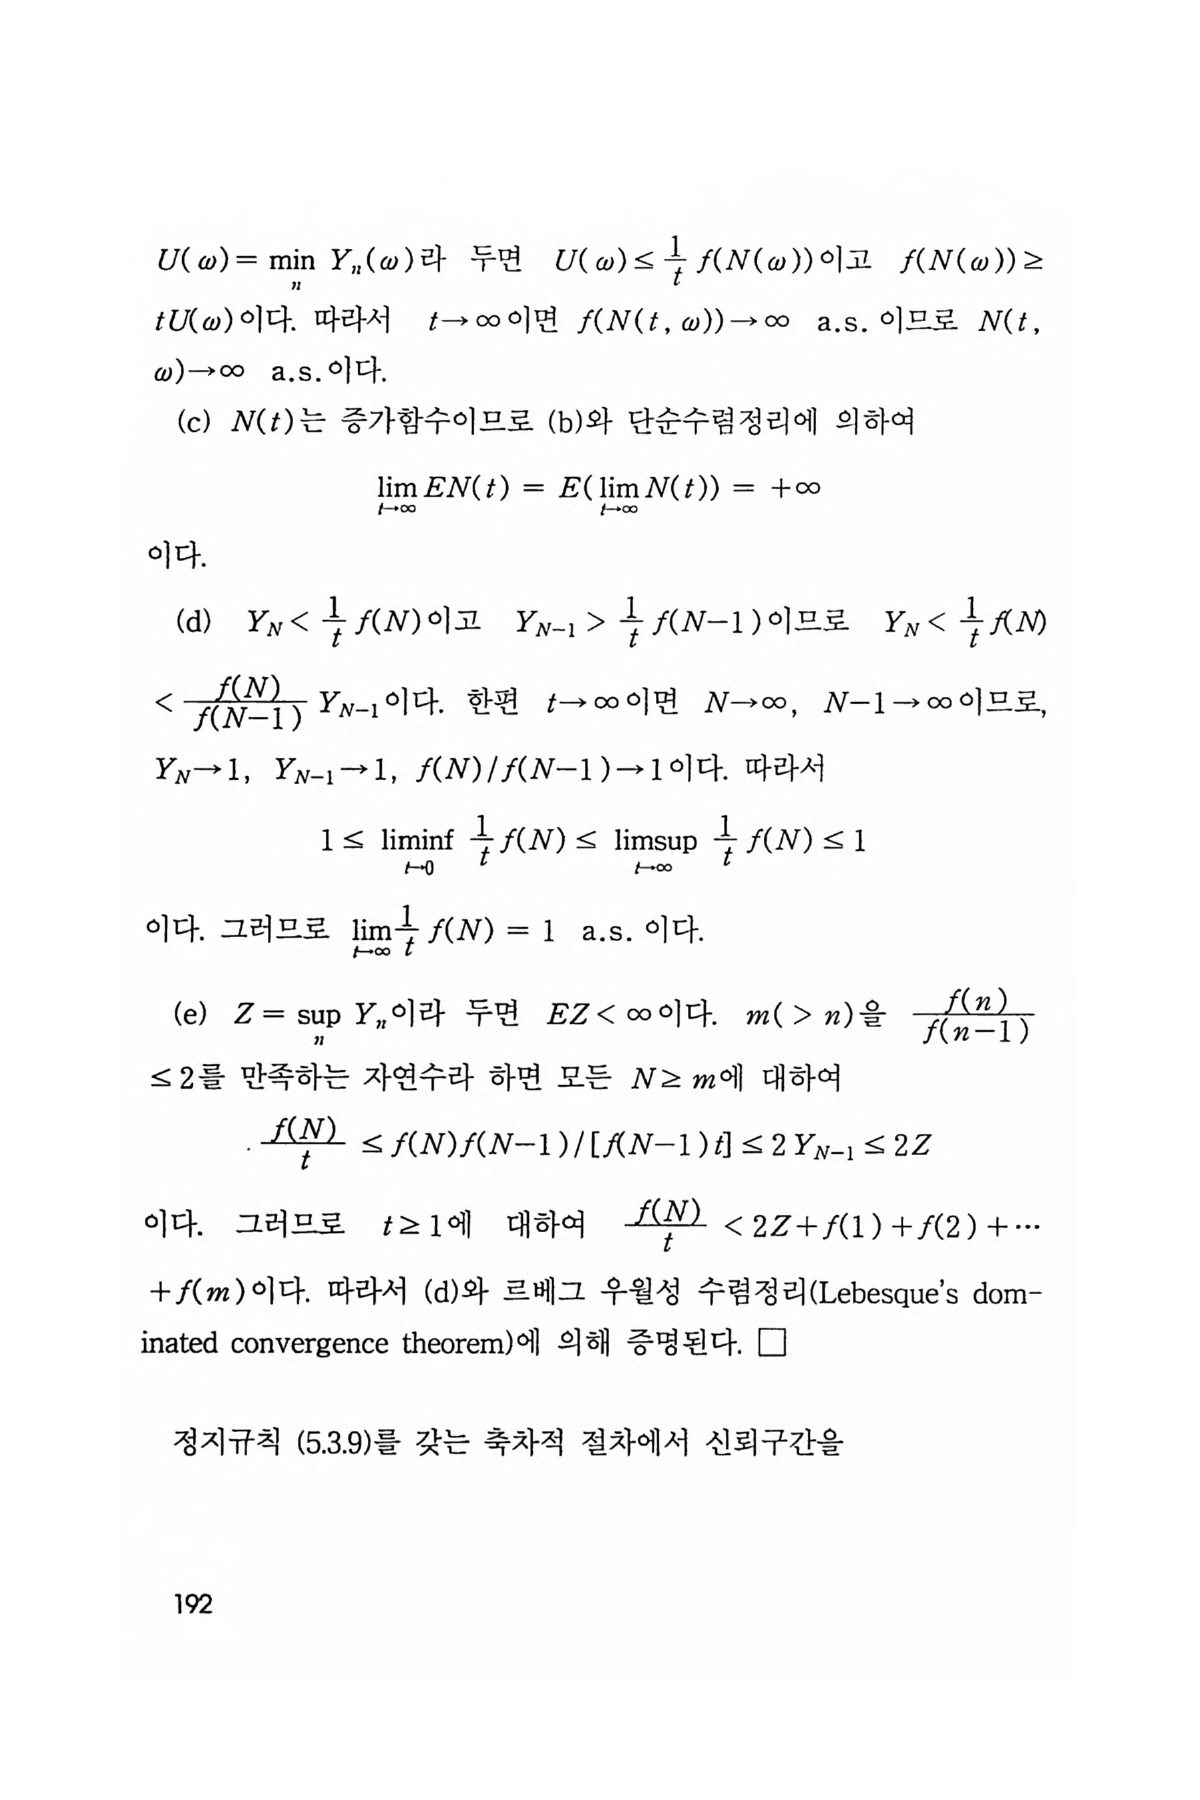 U(ω) = min_n Y_n(ω)라 두면 U(ω) ≤ 1/t f(N(ω))이고 f(N(ω)) ≥
tU(ω)이다. 따라서 t→∞이면 f(N(t, ω))→∞ a.s. 이므로 N(t,
ω)→∞ a.s.이다.
(c) N(t)는 증가함수이므로 (b)와 단순수렴정리에 의하여
lim_{t→∞} EN(t) = E(lim_{t→∞} N(t)) = +∞
이다.
(d) Y_N < 1/t f(N)이고 Y_{N-1} > 1/t f(N-1)이므로 Y_N < 1/t f(N)
< f(N)/f(N-1) Y_{N-1}이다. 한편 t→∞이면 N→∞, N-1→∞이므로,
Y_N→1, Y_{N-1}→1, f(N)/f(N-1)→1이다. 따라서
1 ≤ liminf_{t→0} 1/t f(N) ≤ limsup_{t→∞} 1/t f(N) ≤ 1
이다. 그러므로 lim_{t→∞} 1/t f(N) = 1 a.s. 이다.
(e) Z = sup_n Y_n이라 두면 EZ < ∞이다. m( > n)을 f(n)/f(n-1)
≤ 2를 만족하는 자연수라 하면 모든 N ≥ m에 대하여
f(N)/t ≤ f(N)f(N-1)/[f(N-1)t] ≤ 2Y_{N-1} ≤ 2Z
이다. 그러므로 t ≥ 1에 대하여 f(N)/t < 2Z+f(1)+f(2)+···
+f(m)이다. 따라서 (d)와 르베그 우월성 수렴정리(Lebesque's dom-
inated convergence theorem)에 의해 증명된다. □
정지규칙 (5.3.9)를 갖는 축차적 절차에서 신뢰구간을
192